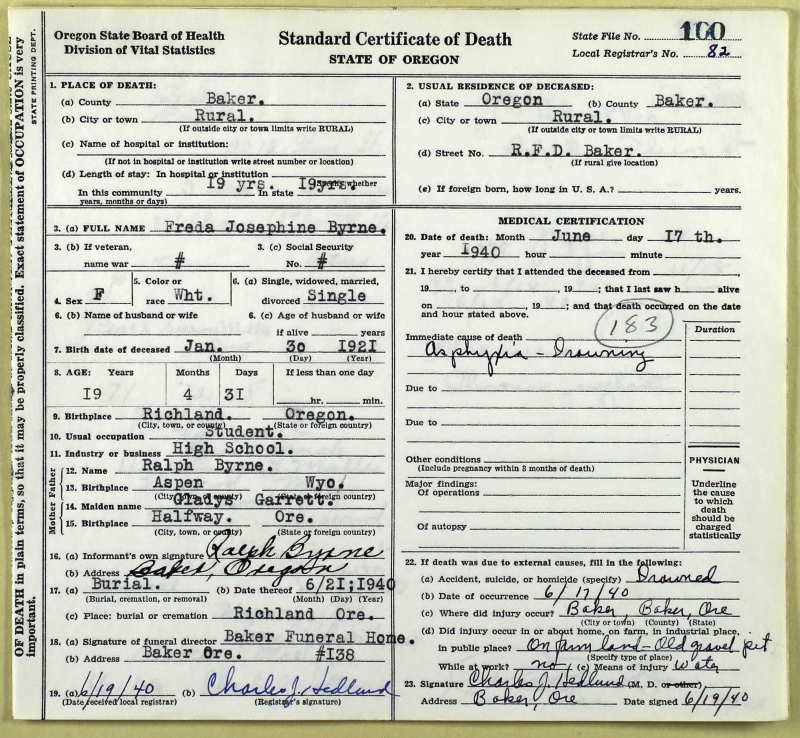 OF DEATH in plain terms, so that it may be properly classified. Exact statement of OCCUPATION is very important.
STATE PRINTING DEPT.
Oregon State Board of Health
Division of Vital Statistics
Standard Certificate of Death
STATE OF OREGON
State File No. 160
Local Registrar's No. 82
1. PLACE OF DEATH:
(a) County Baker.
(b) City or town Rural.
(If outside city or town limits write RURAL)
(c) Name of hospital or institution:
(If not in hospital or institution write street number or location)
(d) Length of stay: In hospital or institution
(Specify whether
In this community 19 yrs. In state 19yrs.
years, months or days)
2. USUAL RESIDENCE OF DECEASED:
(a) State Oregon (b) County Baker.
(c) City or town Rural.
(If outside city or town limits write RURAL)
(d) Street No. R.F.D. Baker.
(If rural give location)
(e) If foreign born, how long in U. S. A.? years.
3. (a) FULL NAME Freda Josephine Byrne.
3. (b) If veteran, name war #
3. (c) Social Security No. #
4. Sex F
5. Color or race Wht.
6. (a) Single, widowed, married, divorced Single
6. (b) Name of husband or wife
6. (c) Age of husband or wife if alive years
7. Birth date of deceased Jan. 30 1921
(Month) (Day) (Year)
8. AGE: Years Months Days If less than one day
19 4 31 hr. min.
9. Birthplace Richland. Oregon.
(City, town, or county) (State or foreign country)
10. Usual occupation Student.
11. Industry or business High School.
Father
12. Name Ralph Byrne.
13. Birthplace Aspen Wyo.
(City, town, or county) (State or foreign country)
Mother
14. Maiden name Gladys Garrett.
15. Birthplace Halfway. Ore.
(City, town, or county) (State or foreign country)
16. (a) Informant's own signature Ralph Byrne
(b) Address Baker, Oregon
17. (a) Burial. (b) Date thereof 6/21;1940
(Burial, cremation, or removal) (Month) (Day) (Year)
(c) Place: burial or cremation Richland Ore.
18. (a) Signature of funeral director Baker Funeral Home.
(b) Address Baker Ore. #138
19. (a) 6/19/40 (b) Charles J. Hedlund
(Date received local registrar) (Registrar's signature)
MEDICAL CERTIFICATION
20. Date of death: Month June day 17 th.
year 1940 hour minute
21. I hereby certify that I attended the deceased from ,
19 , to , 19 ; that I last saw h alive
on , 19 ; and that death occurred on the date
and hour stated above.
183
Duration
Immediate cause of death
Asphyxia - Drowning
Due to
Due to
Other conditions
(Include pregnancy within 3 months of death)
Major findings:
Of operations
Of autopsy
PHYSICIAN
Underline
the cause
to which
death
should be
charged
statistically
22. If death was due to external causes, fill in the following:
(a) Accident, suicide, or homicide (specify) Drowned
(b) Date of occurrence 6/17/40
(c) Where did injury occur? Baker, Baker, Ore
(City or town) (County) (State)
(d) Did injury occur in or about home, on farm, in industrial place,
in public place? On farm land - Old gravel pit
(Specify type of place)
While at work? no (e) Means of injury Water
23. Signature Charles J. Hedlund (M. D. or other)
Address Baker, Ore Date signed 6/19/40